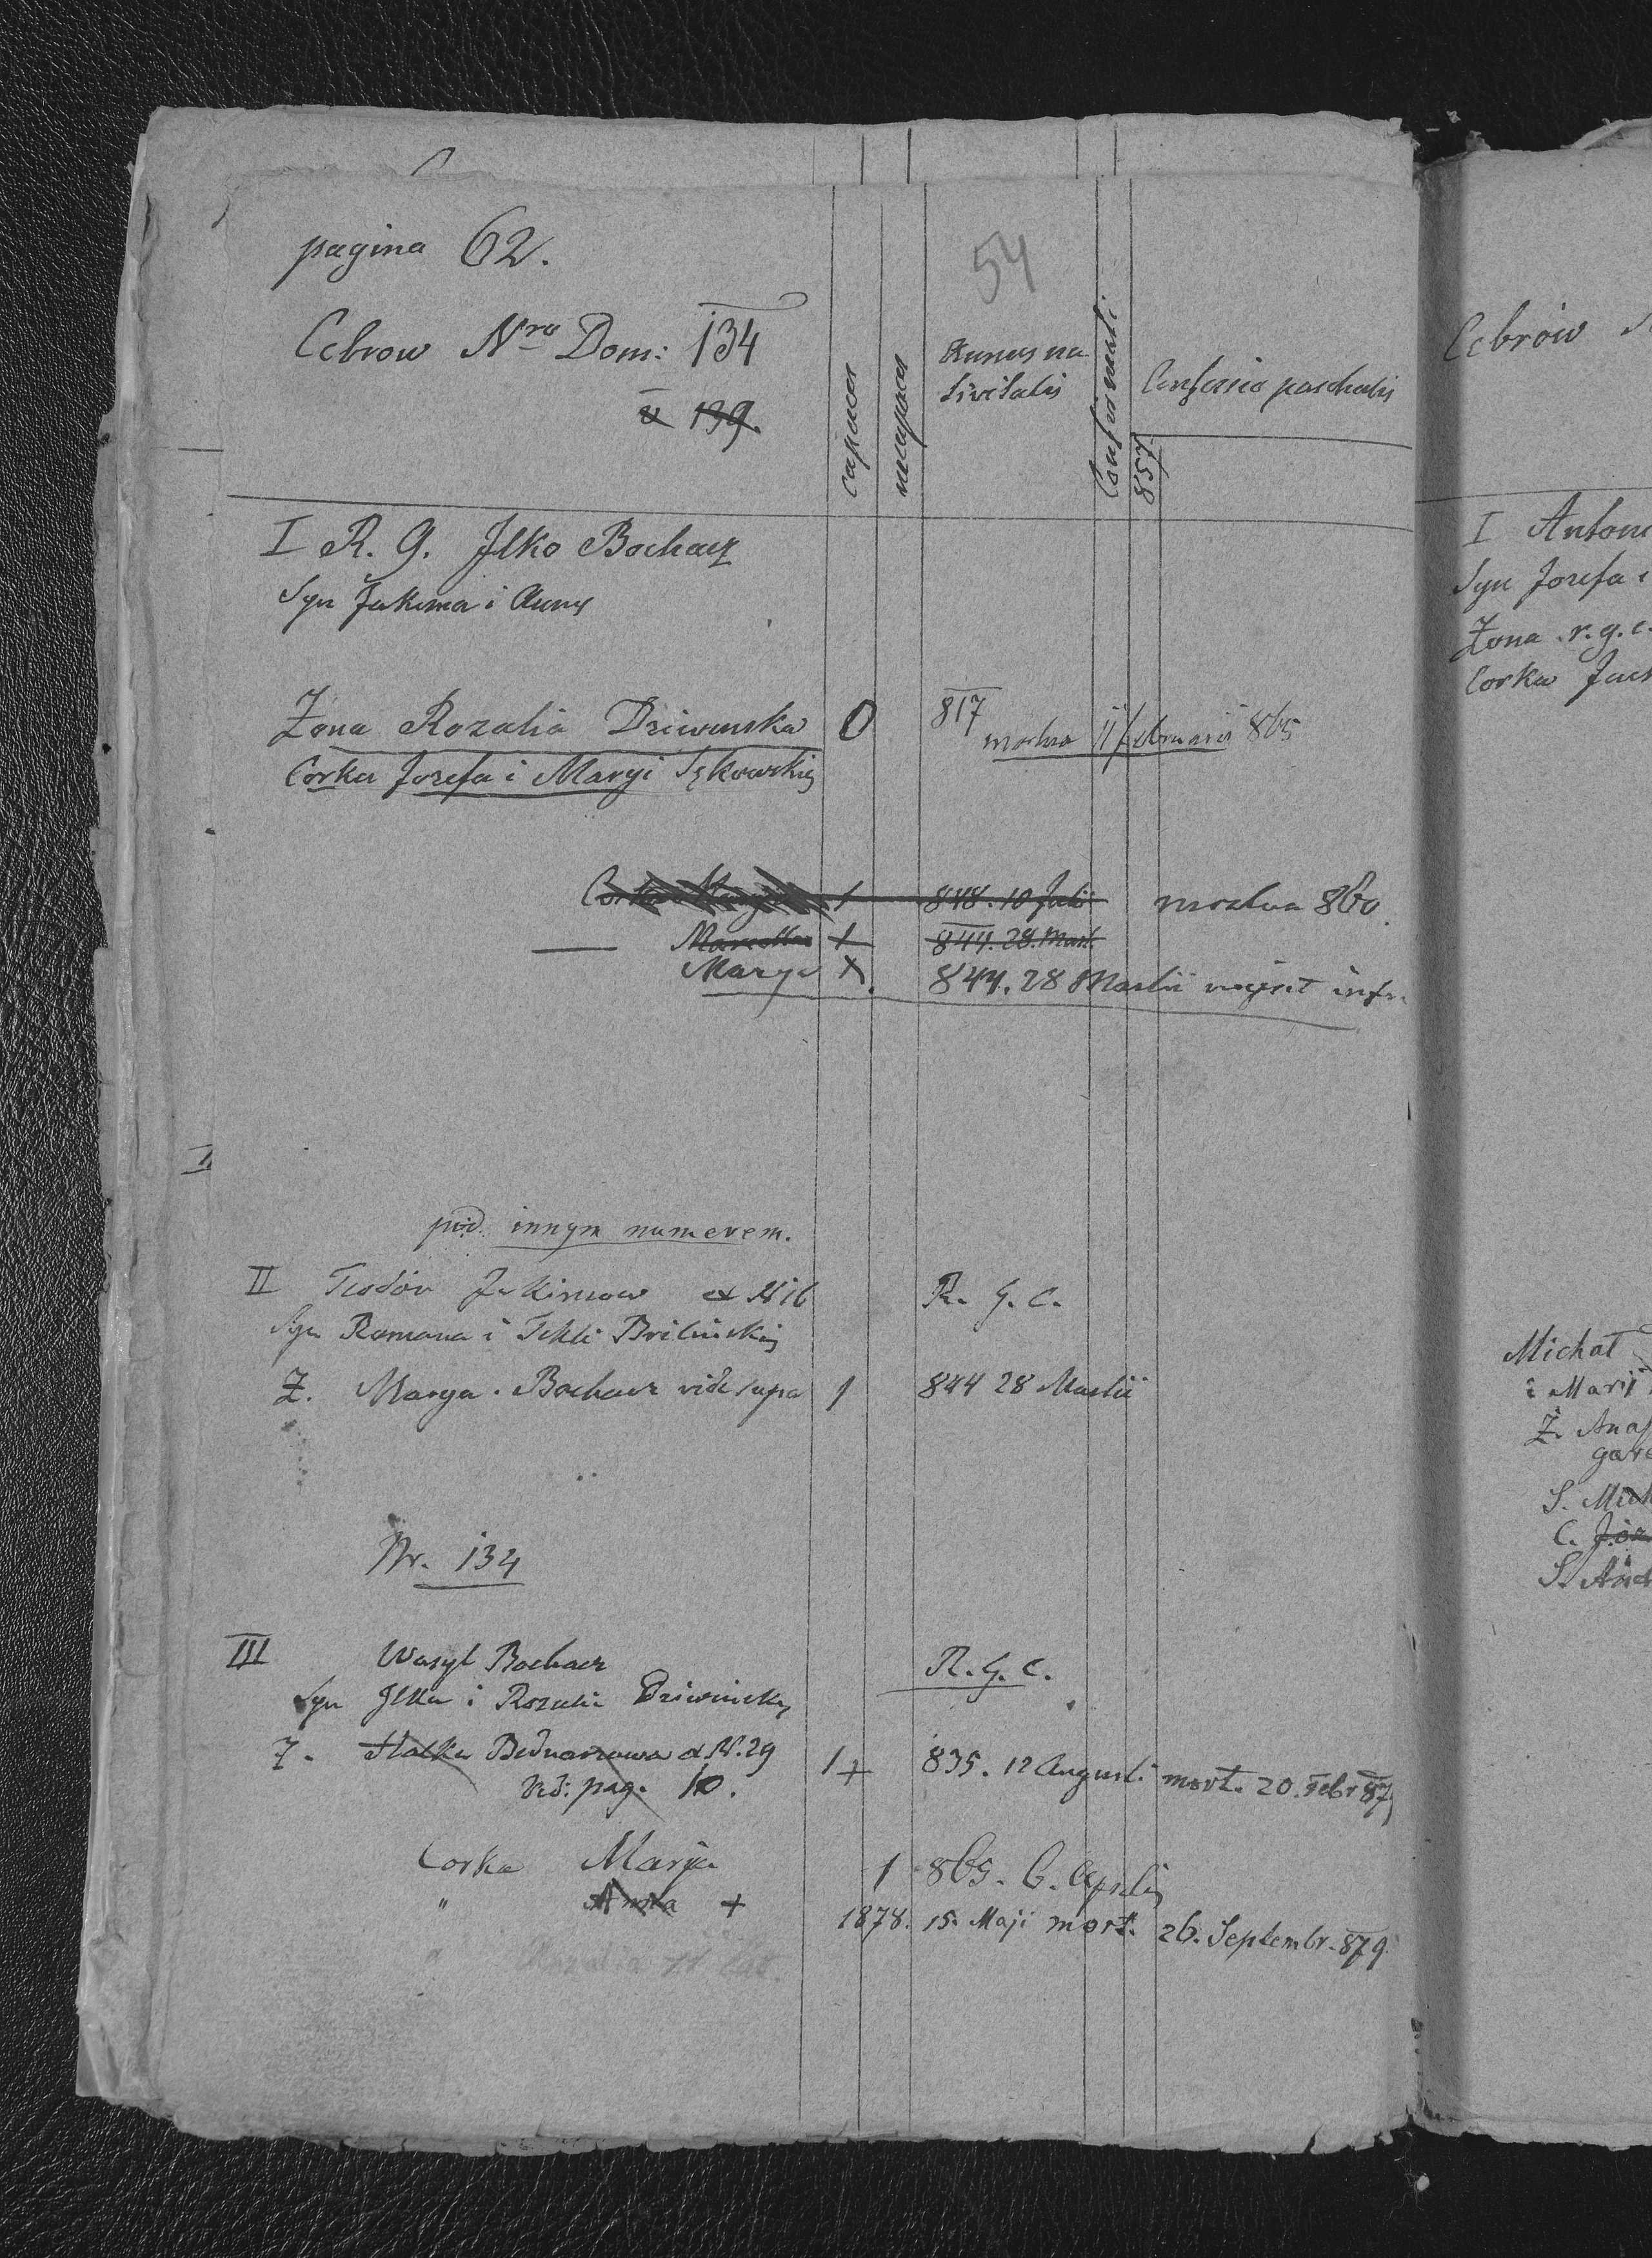 pagina 62.
54
Cebrow Nro Dom: 134
139.
capaces
incapaces
Annus nativitatis
Confirmati
Confessio paschalis
857
I R. G. Ilko Bochacz
Syn Jakima i Anny
Żona Rozalia Dziwinska 0 817 mortua 11 februarii 865
Corka Jozefa i Maryi
Corka 1 848. 10 Julii mortua 860.
Marcella + 844. 28. Mart.
Marya + 844. 28 Martii nupsit infra
pod innym numerem.
II Teodor Jakimow ex N 16 R. G. C.
Syn Romana i Tekli Brilinskiej
Ż. Marya Bochacz vide supra 1 844 28 Martii
Nr. 134
III Wasyl Bochacz R. G. C.
Syn Ilka i Rozalii Dziwinskiej
Ż. Halka Bednarzowa d N. 29 1 + 835. 12 Augusti mort. 20. Febr
vid: pag. 10.
Corka Marja 1 865. 6. Aprilis
" Anna + 1878. 15. Maji mort. 26. Septembr. 879.
"
Cebrów
I Antoni
Syn Jozefa i
Żona r. g. c.
Corka
Michał
i Marji
Ż.
S.
C.
S.